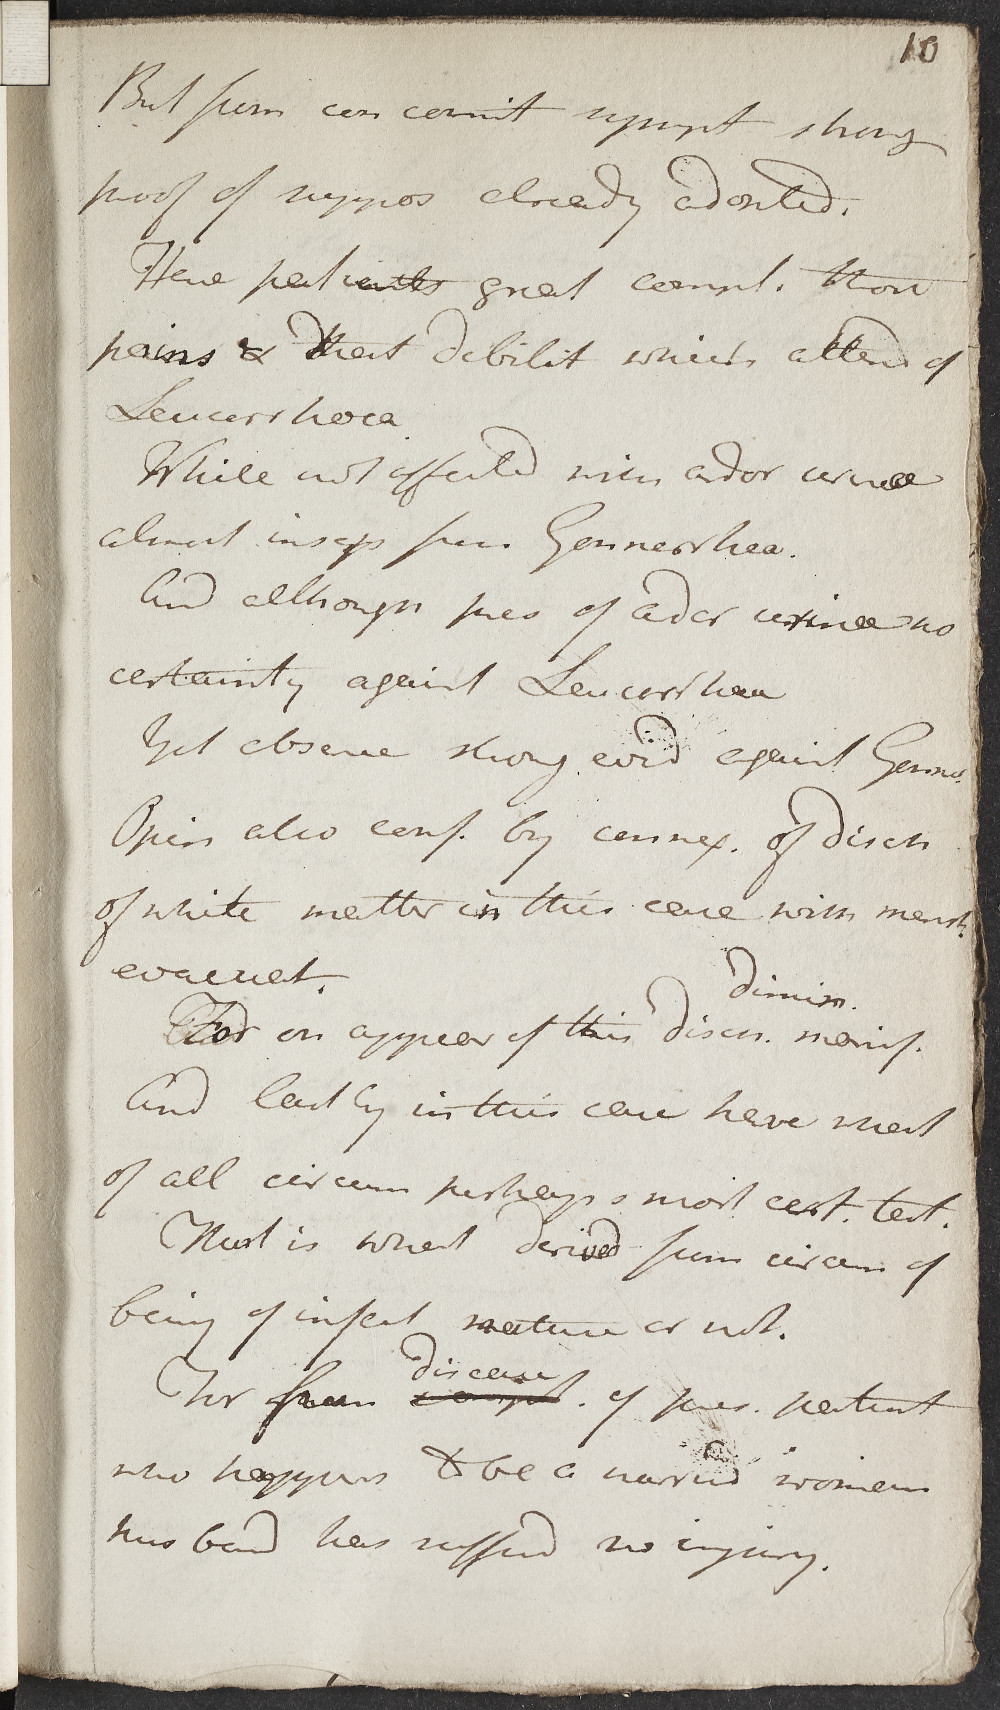 10
But from concomit sympt strong
proof of suppos already adopted.
Here patients great compl. those
pains & that debilit which attend of
Leucorrhoea
While not affected with ardor urinae
almost insep from Gonnorrhea.
And although pres of ardor urinae no
certainty against Leucorrhea
Yet absence strong evid against Gonnor.
Opin also conf. by connex. of disch
of white matter in this case with menst.
evacuat.
dimin.
For on appear of this disch. manif.
And lastly in this case have what
of all circum perhaps most cert. test.
That is what derived from circum of
being of infect nature or not.
disease
For from compl. of pres. patient
who happens to be a married woman
husband has suffered no injury.